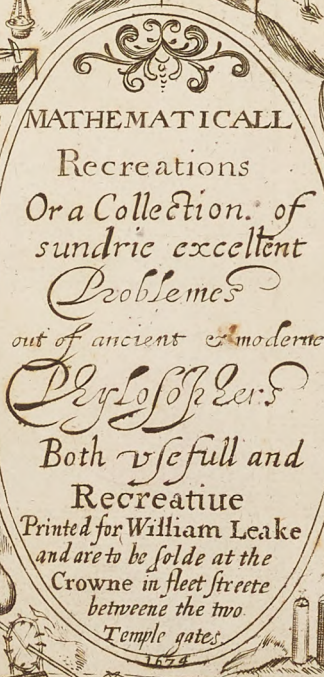 MATHEMATICALL
Recreations
Or a Collection. of
sundrie excellent
Problemes
out of ancient & moderne
Phylosophers
Both vsefull and
Recreatiue
Printed for William Leake
and are to be solde at the
Crowne in fleet streete
betweene the two
Temple gates.
1674